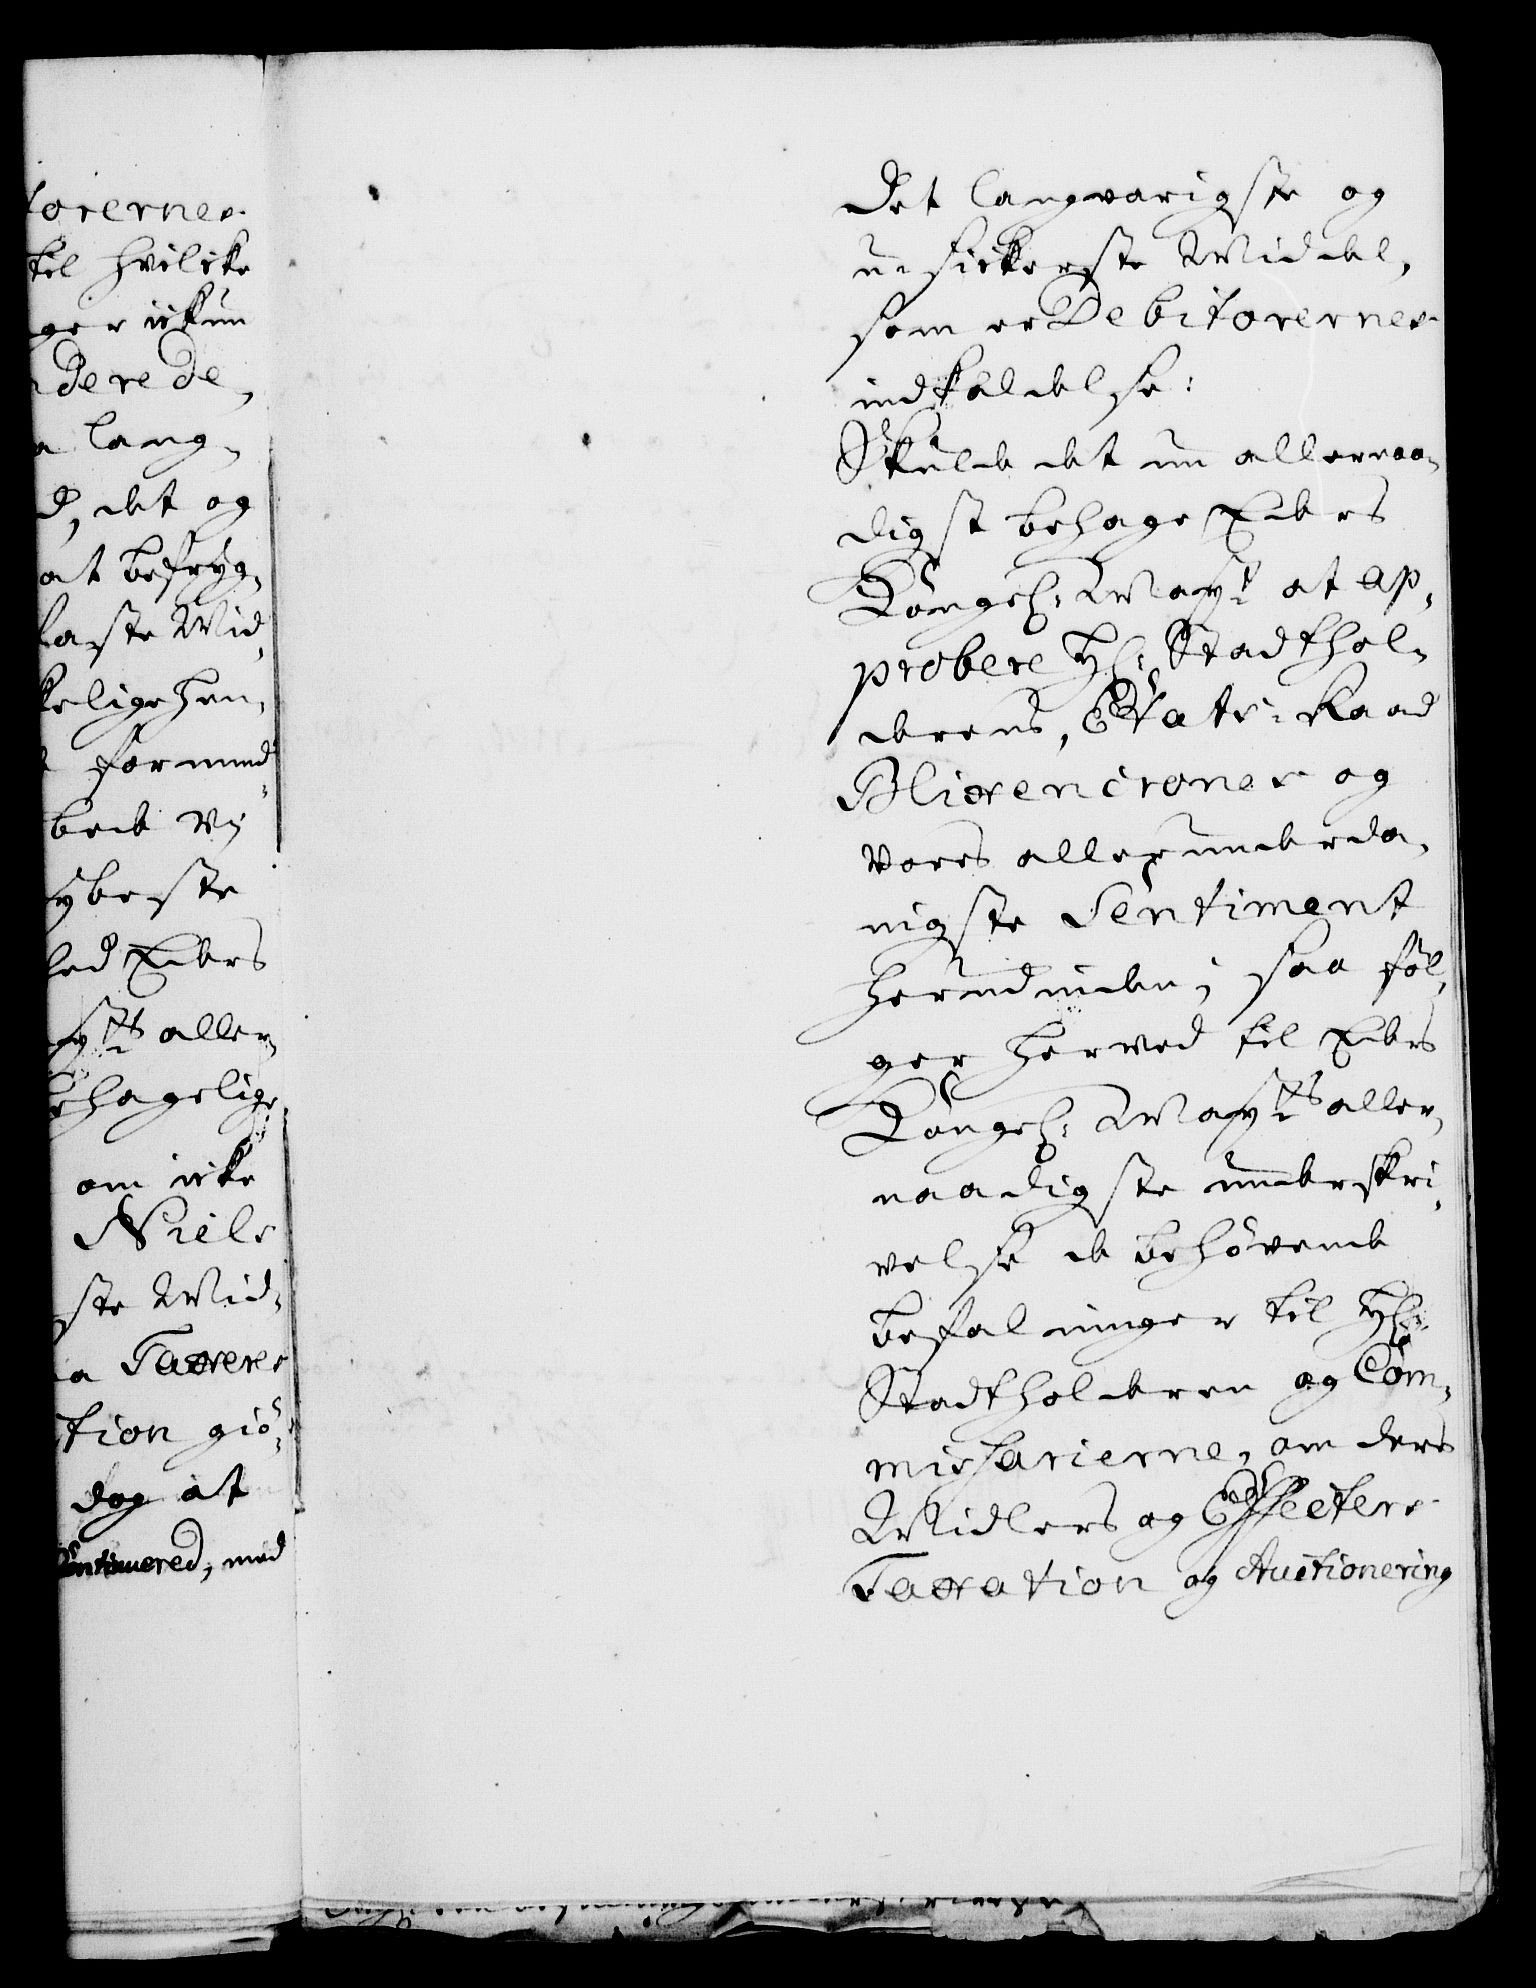 torernes
til hvilcke
ger ickun
derede,
a lang-
d, det og
at befryg-
laste Mid-
kelige hen-
formind-
bede vj
yderste
hed Eders
yts aller-
ehagelige
om icke
Niels
ste Mid-
a Taxeres
tion giö-
dog at
Continuered, med
det langvarigste og
u-sickerste Middel,
som er Debitorernes
indkaldelse:
Skulde det nu allernaa-
digst behage Eders
Kongel: Mayt at ap-
probere Hr: Stadthol-
derens, Etats-Raad
Blixencrones og
vores allerunderda-
nigste Sentiment
herudinden; saa föl-
ger herved til Eders
Kongel: Mayts aller-
naadigste underskri-
velse de behövende
befalninger til Hr:
Stadtholderen og Com-
missarierne, om ders
Midlers og Effecters
Taxation og Auctionering